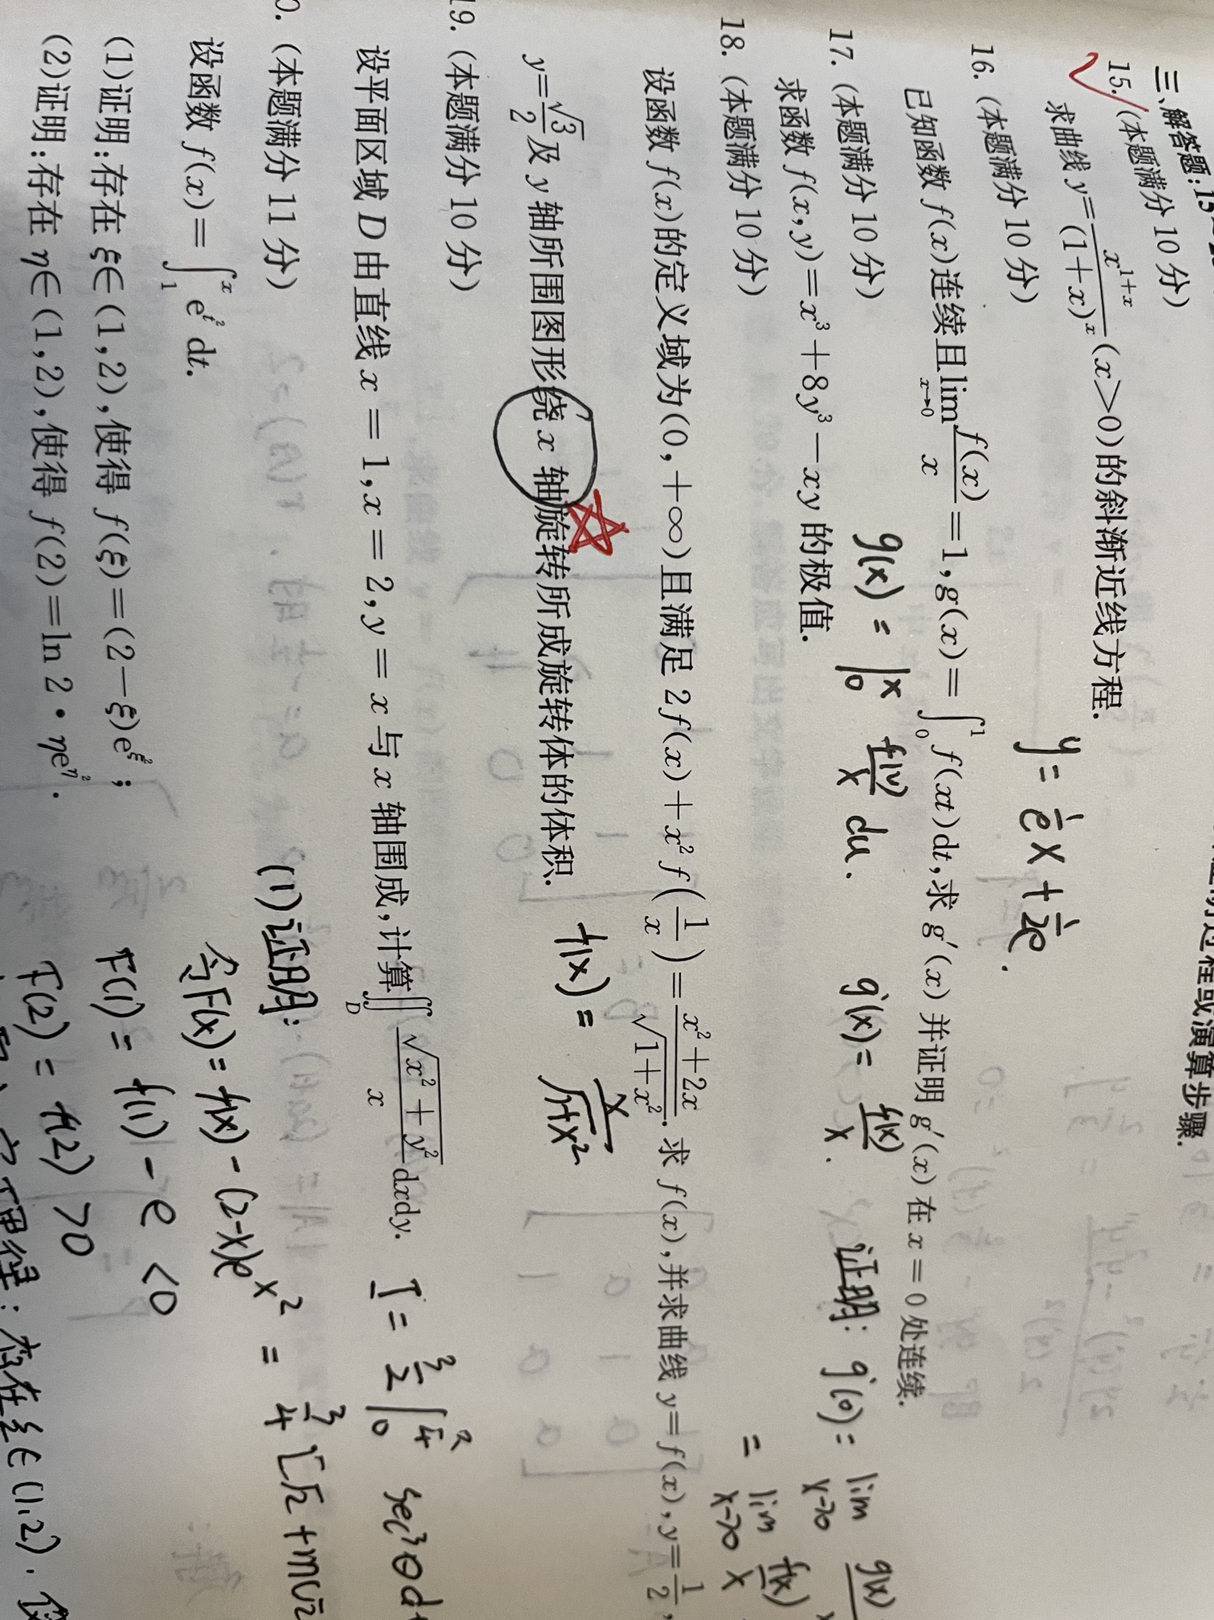 三、解答题:15
过程或演算步骤.
15. (本题满分 10 分)
求曲线 y=\frac{x^{1+x}}{(1+x)^x}(x>0)的斜渐近线方程.
y = \frac{1}{e}x + \frac{1}{2e}.
16. (本题满分 10 分)
已知函数 f(x)连续且\lim_{x→0}\frac{f(x)}{x}=1,g(x)=∫_0^1 f(xt)dt,求 g′(x)并证明 g′(x)在 x=0 处连续.
g(x) = ∫_0^x \frac{f(u)}{x} du.
证明: g'(0) = \lim_{x→0} \frac{g(x)}{x}
= \lim_{x→0} \frac{f(x)}{x}
17. (本题满分 10 分)
求函数 f(x,y)=x³+8y³-xy 的极值.
18. (本题满分 10 分)
设函数 f(x)的定义域为(0,+∞)且满足 2f(x)+x²f(\frac{1}{x})=\frac{x²+2x}{\sqrt{1+x²}}. 求 f(x),并求曲线 y=f(x),y=\frac{1}{2},
y=\frac{\sqrt{3}}{2}及 y 轴所围图形绕 x 轴旋转所成旋转体的体积.
f(x) = \frac{x}{\sqrt{1+x²}}
19. (本题满分 10 分)
设平面区域 D 由直线 x=1,x=2,y=x 与 x 轴围成,计算∬_D \frac{\sqrt{x²+y²}}{x}dxdy.
I = \frac{3}{2} ∫_0^{\frac{π}{4}} sec³θ d
= \frac{3}{4} [√2 +
0. (本题满分 11 分)
设函数 f(x)=∫_1^x e^{t²}dt.
(1)证明:存在 ξ∈(1,2),使得 f(ξ)=(2-ξ)e^{ξ²};
(2)证明:存在 η∈(1,2),使得 f(2)=ln 2·ηe^{η²}.
(1)证明:
令F(x) = f(x) - (2-x)e^{x²}
F(1) = f(1) - e < 0
F(2) = f(2) > 0
存在ξ∈(1,2).